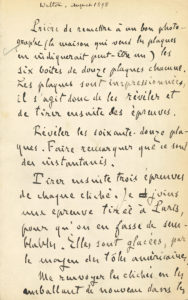 Wilton, August 1898
Prière de remettre à un bon photo-
graphe (la maison qui vend les plaques
en indiquerait peut-être un) les
six boîtes de douze plaques chacune.
Les plaques sont impressionnées,
il s'agit donc de les réveler et
de tirer ensuite des épreuves.
Réveler les soixante-douze pla-
ques. Faire remarquer que ce sont
des instantanés.
Tirer ensuite trois épreuves
de chaque cliché. Je joins
une épreuve tirée à Paris,
pour qu'on en fasse de sem-
blables. Elles sont glacées, par
le moyen des tôles américaines.
Me renvoyer les clichés en les
emballant de nouveau dans le